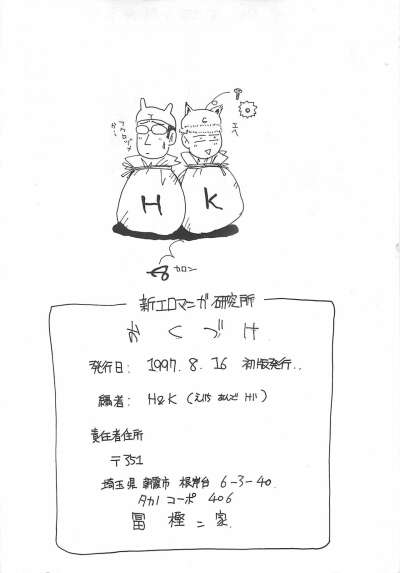 エヘ
H K
カロン
新エロマンガ研究所
かくづけ
発行日: 1997. 8. 16 初版発行..
編者: H&K (えいち あんど けい)
責任者住所
〒351
埼玉県 朝霞市 根岸台 6-3-40.
タカノ コーポ 406
冨樫ン家.